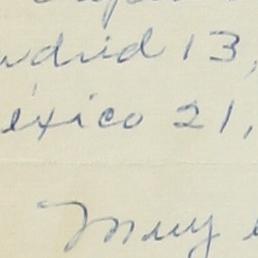 adrid 13,
éxico 21,
Muy